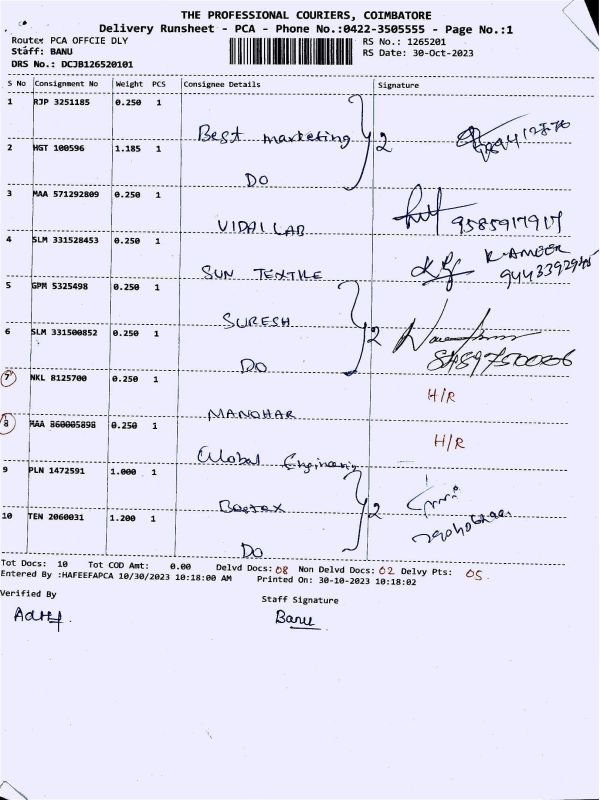 THE PROFESSIONAL COURIERS, COIMBATORE
Delivery Runsheet - PCA - Phone No.:0422-3505555 - Page No.:1
Route: PCA OFFCIE DLY RS No.: 1265201
Staff: BANU RS Date: 30-Oct-2023
DRS No.: DCJB126520101
S No Consignment No Weight PCS Consignee Details Signature
1 RJP 3251185 0.250 1
Best marketing 2
2 HGT 100596 1.185 1
DO
3 MAA 571292809 0.250 1
VIDAI LAB 9585917917
4 SLM 331528453 0.250 1
SUN TEXTILE K. AMEER
5 GPM 5325498 0.250 1
SURESH 2
6 SLM 331500852 0.250 1
DO
7 NKL 8125700 0.250 1 H/R
MANOHAR
8 MAA 860005898 0.250 1 H/R
Global
9 PLN 1472591 1.000 1
2
10 TEN 2060031 1.200 1
DO
Tot Docs: 10 Tot COD Amt: 0.00 Delvd Docs: 08 Non Delvd Docs: 02 Delvy Pts: 05.
Entered By :HAFEEFAPCA 10/30/2023 10:18:00 AM Printed On: 30-10-2023 10:18:02
Verified By Staff Signature
Banu